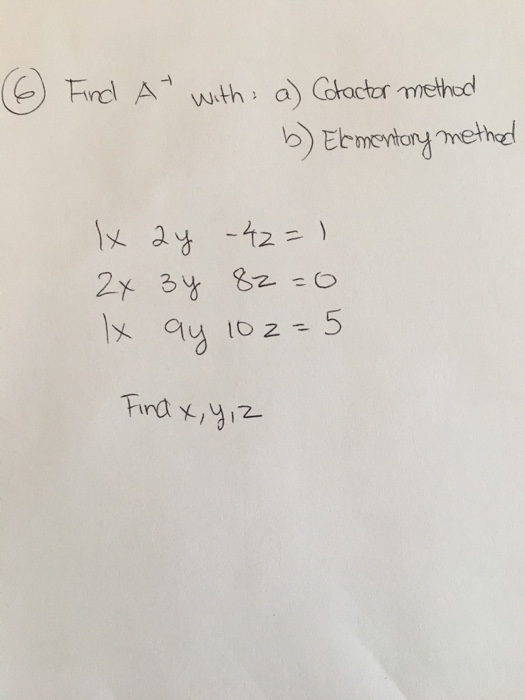 6 Find A⁻¹ with: a) Cofactor method
b) Elementary method
1x 2y -4z = 1
2x 3y 8z = 0
1x 9y 10z = 5
Find x, y, z